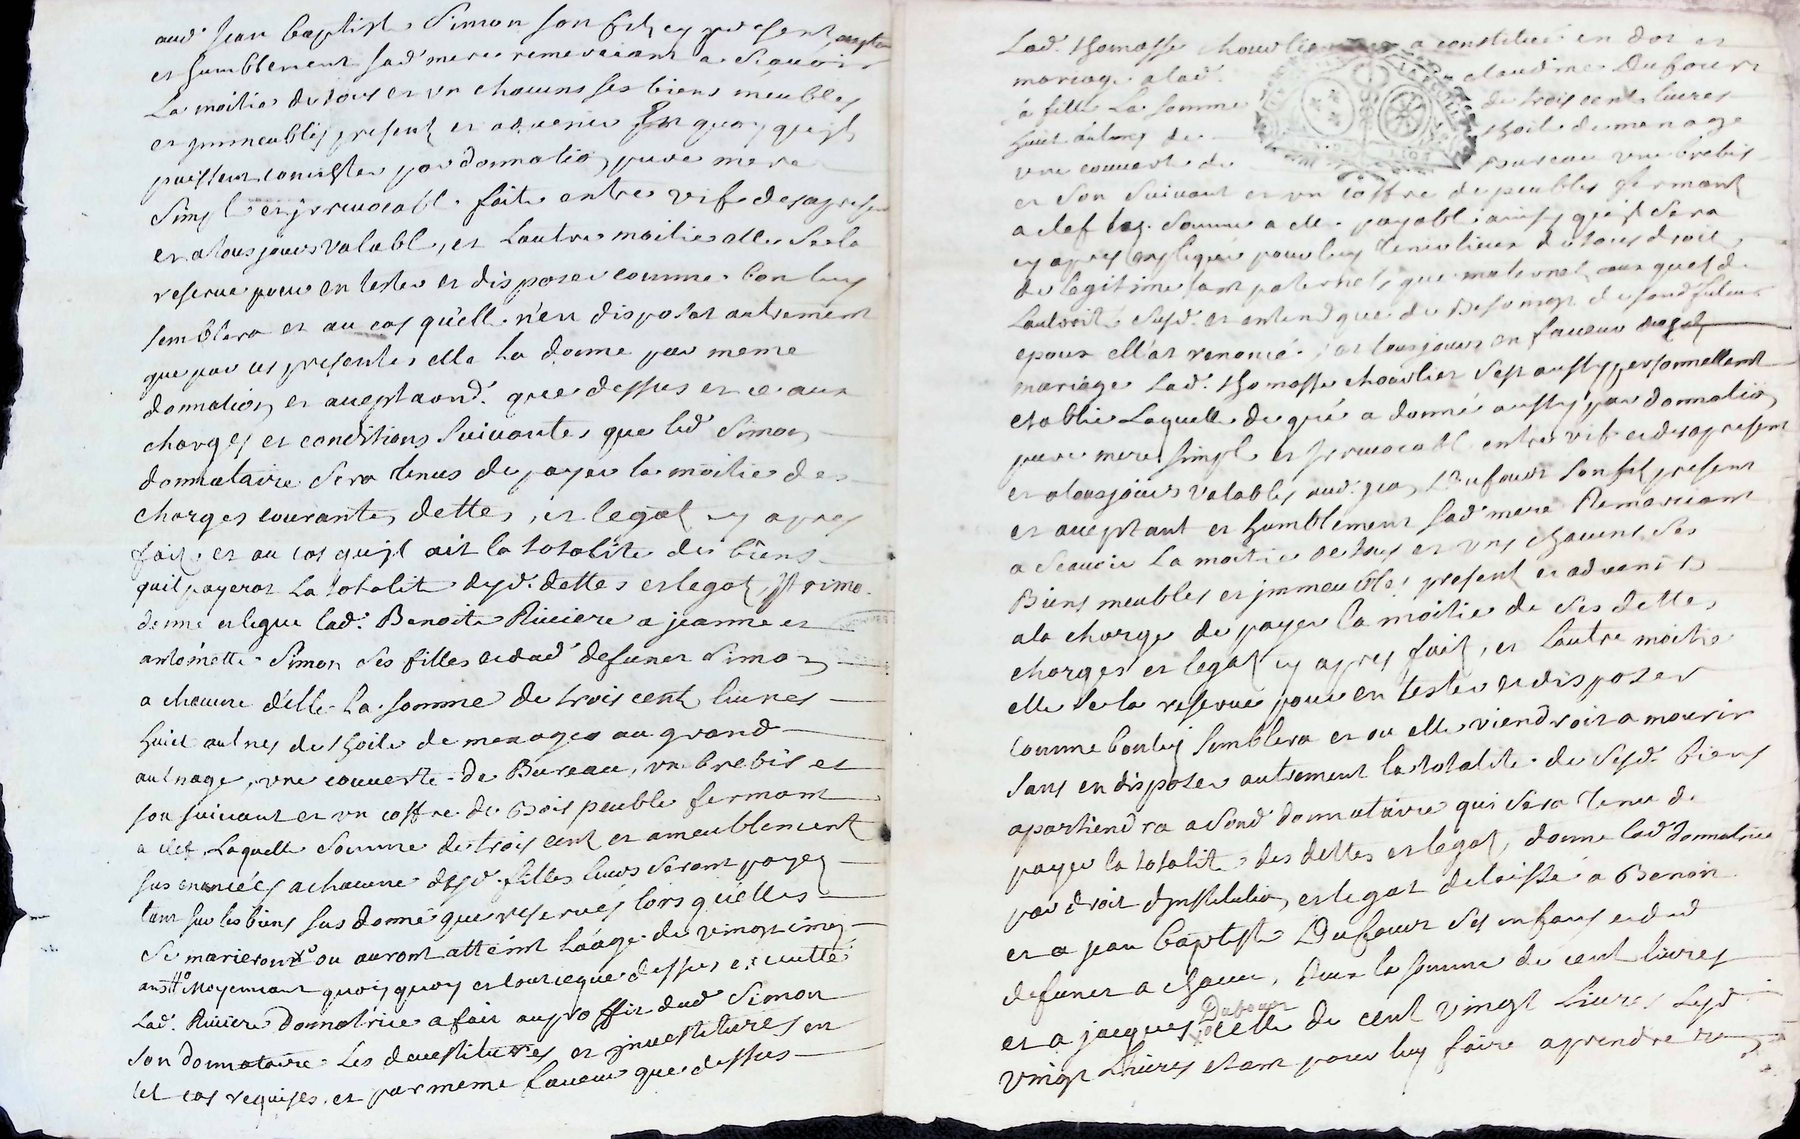 aud. jean baptiste Simon son fils cy present acceptan
et humblement sad. mere remerciant a Scavoir
La moitie de tous et un chacuns ses biens meubles
et jmmeubles present et advenir En quoy quils
puissent consister par donnation pure mere
Simple et jrrevocable faite entre vifs des apresen
et a tousjours valable, et Lautre moitie elle se la
reserve pour en tester et disposer comme bon luy
semblera et au cas qu'elle n'en disposat autrement
que par ces presentes elle la donne par meme
donnation et acceptaon. que dessus et ce aux
charges et conditions Suivantes que led. Simon
donnataire Sera tenus de payer la moitie des
charges courantes, dettes, et legat cy apres
fait, et au cas qu'jl ait la totalite des biens
quil payerat La totalite desd. dettes et legat, Primo
donne et legue lad. Benoite Riviere a jeanne et
antoinette Simon ses filles et dud. defunct Simon
a chacune d'elle la somme de trois cent livres
huict aulnes de thoile de menages au grand
aulnage, une couverte de Bureau, un brebis et
son suivant et un coffre de Bois peuble fermant
a clef, Laquelle Somme de trois cent et ameublement
sus enoncés a chacune desd. filles leurs seront payez
tant sur les biens sus donné que reservés lors qu'elles
se marieront ou auront atteint l'aage de vingt cinq
ans Moyennant quoy et tout ce que dessus executté
Lad. Riviere Donnatrice a fait au proffit dud. Simon
son donnataire Les devestitures et jnvestitures en
tel cas requises, et par meme faveur que dessus
Lad. thomasse chouvlier a constitué en dot et
mariage a lad. claudine Dufour
sa fille La somme de trois cent livres
huict aulnes de thoile de menage
une couverte de Bureau une brebis
et son suivant et un coffre de peubles fermant
a clef Somme a elle payable ainsy qu'jl Sera
cy apres expliqué pour luy tenir lieux de tous droit
de legitime tant paternels que maternels aux quels de
Lauthorité susd. et entend que de Besoing de sond. futeur
epoux ell'at renoncé et tousjours en faveur duquel
mariage Lad. thomasse chouvlier Sest aussy personnellement
etablie Laquelle de gré a donné aussy par donnation
pure mere simple et jrrevocable entre vifs et des apresent
et a tousjours valables aud. Dufour son fils present
et acceptant et humblement sad. mere Remerciant
a Scavoir La moitie de tous et uns chacuns ses
Biens meubles et jmmeubles present et advenirs
a la charge de payer la moitie de ses dettes,
charges et legat cy apres fait, et Lautre moitie
elle se la reserve pour en tester et disposer
comme bon luy semblera et ou elle viendroit a mourir
sans en disposer autrement la totalite de sesd. biens
apartiendra a sond. donnataire qui sera tenu de
payer la totalite des dettes et legat, donne lad. donnatrice
par droit d'jnstitution, et legat delaissé a Benoit
et a jean baptiste Dufour ses enfans et dud
defunct a chacun, deux la somme de cent livres
Dufour
et a jacques celle de cent vingt Livres Lesd.
vingt Livres etant pour luy faire aprendre